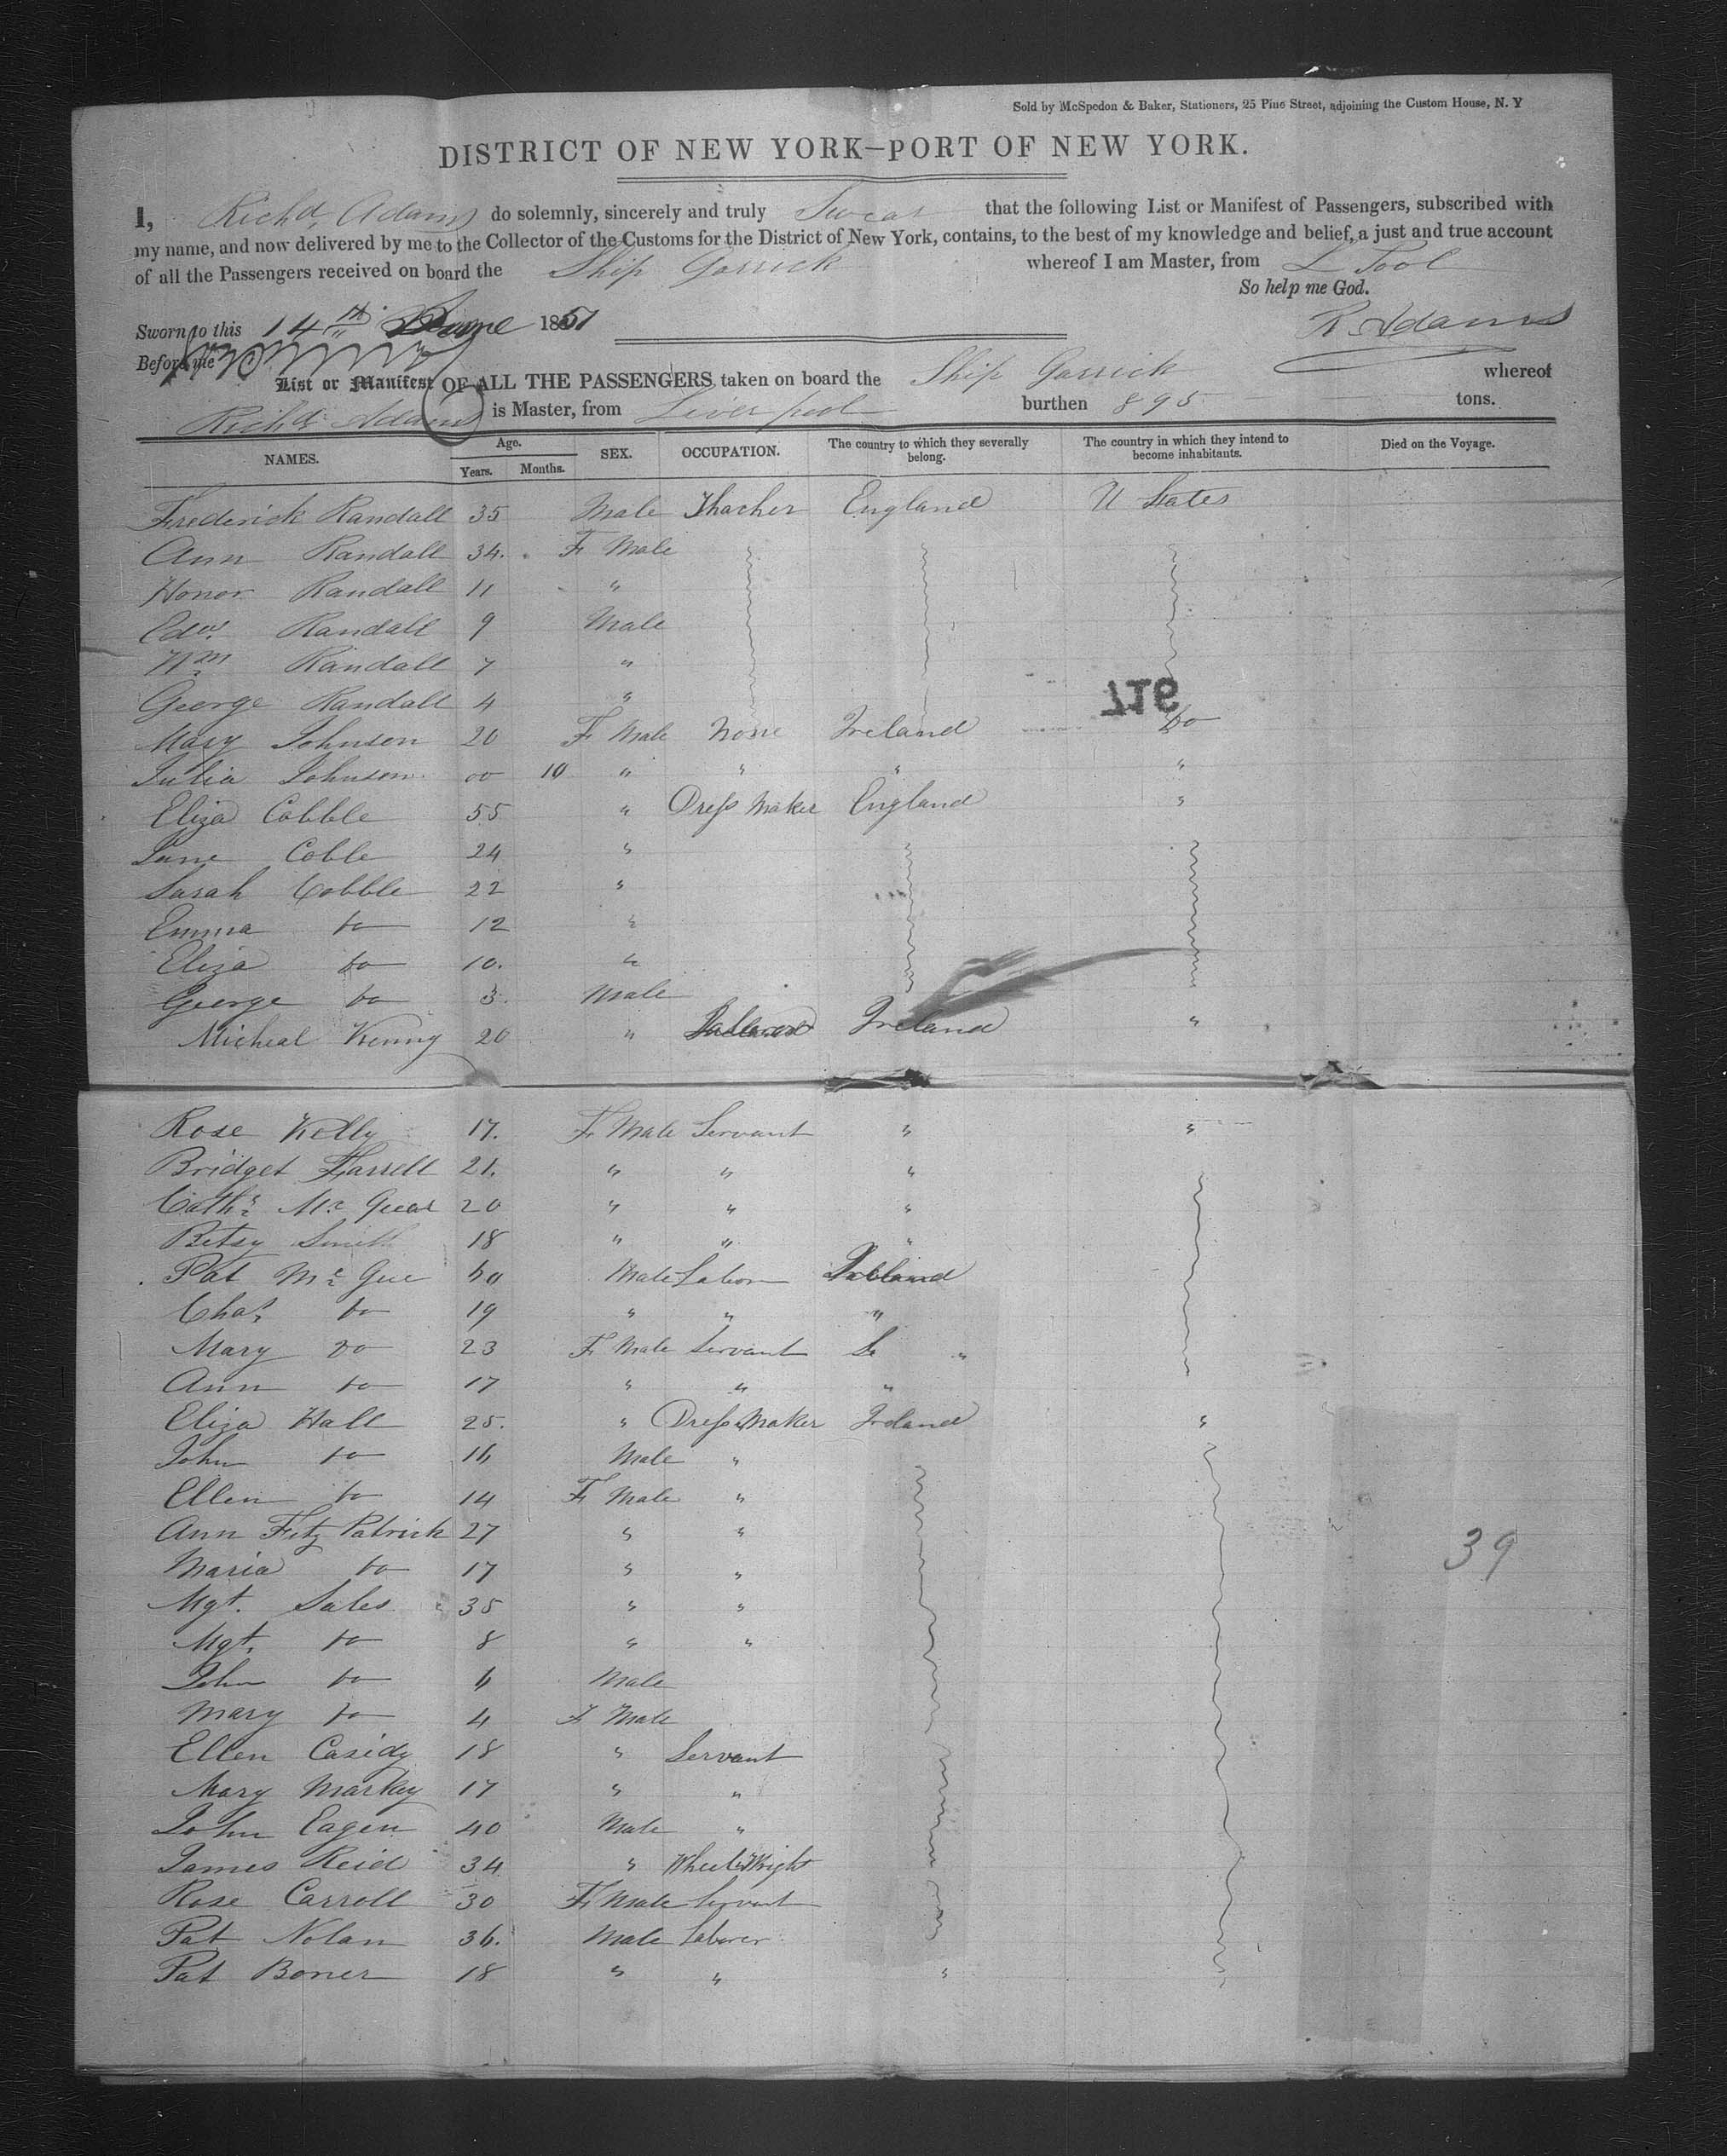 Sold by McSpedon & Baker, Stationers, 25 Pine Street, adjoining the Custom House, N. Y
DISTRICT OF NEW YORK—PORT OF NEW YORK.
I, Richd. Adams do solemnly, sincerely and truly Swear that the following List or Manifest of Passengers, subscribed with
my name, and now delivered by me to the Collector of the Customs for the District of New York, contains, to the best of my knowledge and belief, a just and true account
of all the Passengers received on board the Ship Garrick whereof I am Master, from L Pool
So help me God.
Sworn to this 14th June 1851 R. Adams
Before me
List or Manifest OF ALL THE PASSENGERS taken on board the Ship Garrick whereof
Richd. Adams is Master, from Liverpool burthen 895 tons.
NAMES. Age. Years. Months. SEX. OCCUPATION. The country to which they severally belong. The country in which they intend to become inhabitants. Died on the Voyage.
Frederick Randall 35 Male Thacher England U States
Ann Randall 34. F Male
Honor Randall 11 "
Edwd. Randall 9 Male
Wm Randall 7 "
716
George Randall 4 "
Mary Johnson 20 F Male None Ireland Do
Julia Johnson 00 10 " " " "
Eliza Cobble 55 " Dress Maker England "
Jane Coble 24 "
Sarah Cobble 22 "
Emma Do 12 "
Eliza Do 10. "
George Do 3. Male
Micheal Kenny 20 " Ireland "
Rose Kelly 17. F Male Servant " "
Bridget Farrell 21. " " "
Cath. Mc 20 " " "
Betsy Smith 18 " " "
Pat Mc Gue Male Labor Ireland
Chas. Do 19 " " "
Mary Do 23 F Male Servant "
Ann Do 17 " " "
Eliza Hall 25. " Dress Maker Ireland "
John Do 16 Male "
Ellen Do 14 F Male "
Ann Fitz Patrick 27 " "
39
Maria Do 17 " "
Mgt. Sales 35 " "
Mgt. Do 8 " "
John Do 6 Male
Mary Do 4 F Male
Ellen Casidy 18 " Servant
Mary Markey 17 " "
John Eagen 40 Male "
James Reid 34 " Wheel Wright
Rose Carroll 30 F Male Servant
Pat Nolan 36. Male Laborer
Pat Boner 18 " " "